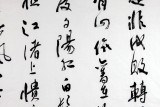 是非成敗轉
青山依舊在
度夕陽紅白髮
江渚上慣
風一